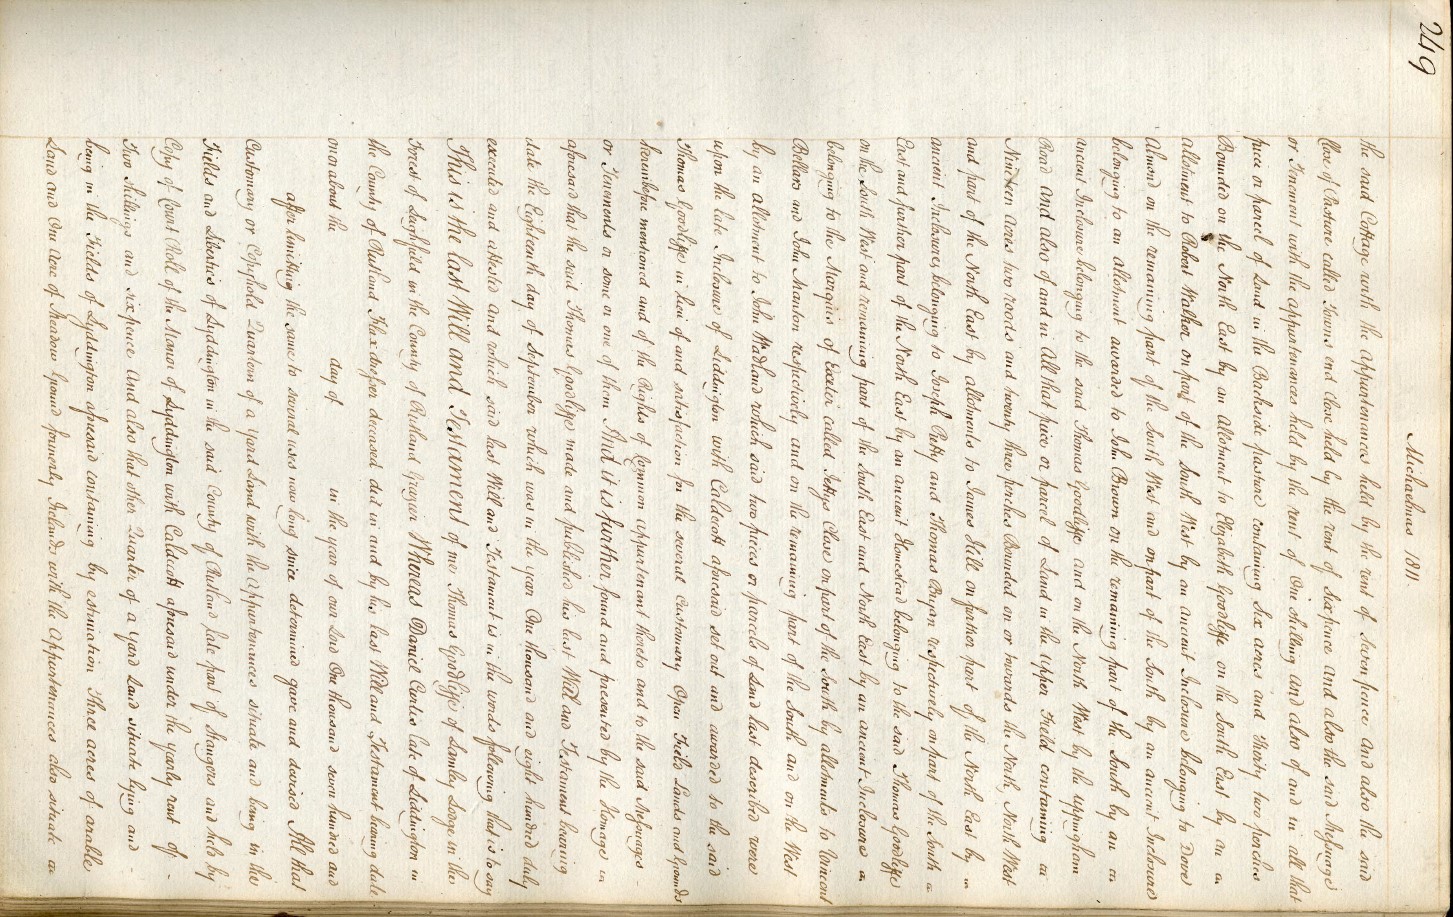 249
Michaelmas 1811.
the said Cottage with the Appurtenances held by the rent of Seven pence and also the said
Close of Pasture called Towns end close held by the rent of Sixpence and also the said Messuage
or Tenement with the appurtenances held by the rent of One shilling and also of and in all that
piece or parcel of Land in the Backside pasture containing Six acres and thirty two perches
Bounded on the North East by an Allotment to Elizabeth Goodliffe on the South East by an
allotment to Robert Walker on part of the South West by an ancient Inclosure belonging to
Almond on the remaining part of the South West and on part of the South by an ancient Inclosure
belonging to an allotment awarded to John Brown on the remaining part of the South by an
ancient Inclosure belonging to the said Thomas Goodliffe and on the North West by the Uppingham
Road And also of and in All that piece or parcel of Land in the Upper Field containing
Nineteen acres two roods and twenty three perches Bounded on or towards the North, North West
and part of the North East by allotments to James Hill on further part of the North East by
ancient Inclosures belonging to Joseph and Thomas Bryan respectively on part of the South
East and further part of the North East by an ancient Homestead belonging to the said Thomas Goodliffe
on the South West and remaining part of the South East and North East by an ancient Inclosure
belonging to the Marquis of Exeter called Close on part of the South by allotments to Vincent
Bellars and John Manton respectively and on the remaining part of the South and on the West
by an allotment to John Wadland which said two pieces or parcels of Land last described were
upon the late Inclosure of Liddington with Caldecott aforesaid set out and awarded to the said
Thomas Goodliffe in lieu of and satisfaction for the several Customary Open Field Lands and Grounds
hereinbefore mentioned and of the Rights of Common appurtenant thereto and to the said Messuages
or Tenements or some or one of them And it is further found and presented by the Homage
aforesaid that he the said Thomas Goodliffe made and published his last Will and Testament bearing
date the Eighteenth day of September which was in the year One thousand and eight hundred duly
executed and attested and which said last Will and Testament is in the words following that is to say
This is the last Will and Testament of me Thomas Goodliffe of Lambly Lodge in the
Forest of Leighfield in the County of Rutland Grazier Whereas Daniel Curtis late of Liddington in
the County of Rutland deceased did in and by his last Will and Testament bearing date
on or about the day of in the year of our Lord One thousand seven hundred and
after limiting the same to several uses now long since determined gave and devised All that
Customary or Copyhold Quartern of a Yard Land with the Appurtenances situate and being in the
Fields and Liberties of Lyddington in the said County of Rutland late part of and held by
Copy of Court Roll of the Manor of Lyddington with Caldecott aforesaid under the yearly rent of
Two shilling and sixpence And also that other Quarter of a Yard Land situate lying and
being in the Fields of Lyddington aforesaid containing by estimation Three acres of arable
Land and One Acre of Meadow Ground formerly Irelands with the Appurtenances also situate